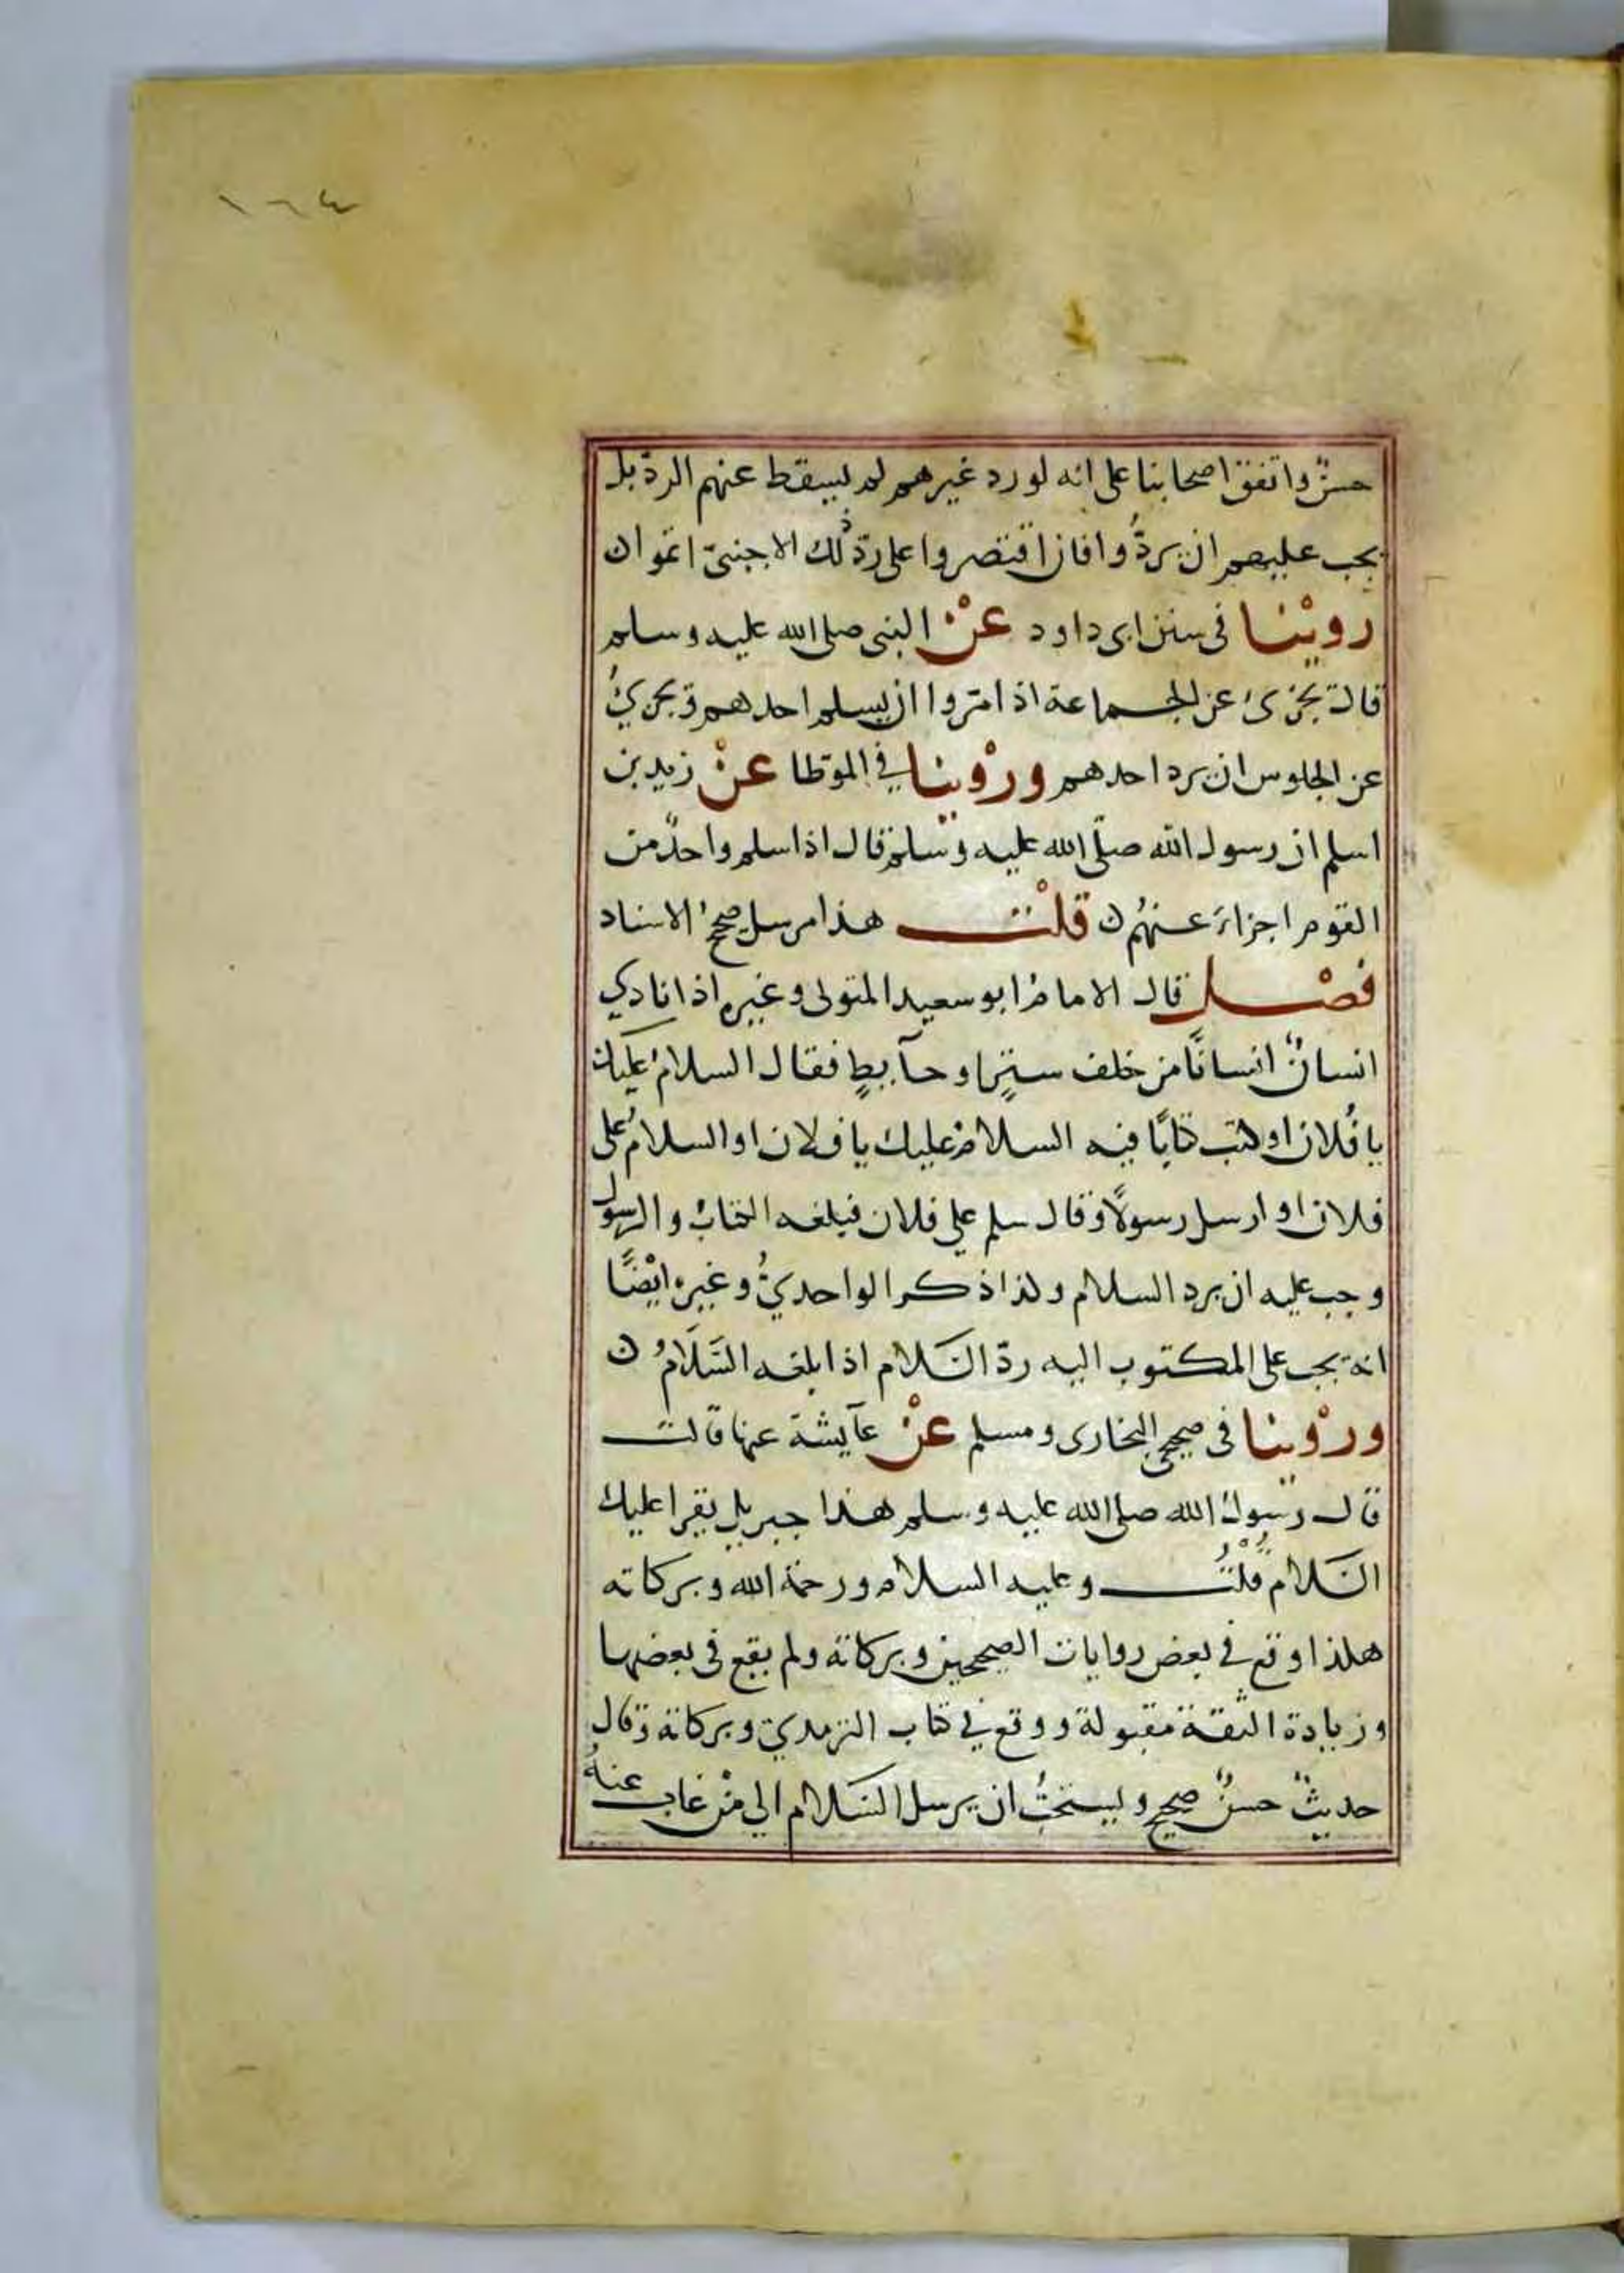 ١٦٤
حسنٌ واتفق اصحابنا على انه لو رد غيرهم لم يسقط عنهم الردّ بل
يجب عليهم ان يردُّوا فان اقتصروا على ردّ ذلك الاجنبىّ اثموا ن
روينا فى سنن ابى داود عن النبى صلى الله عليه وسلم
قال يجزىُ عن الجماعة اذا مرّوا ان يسلم احدهم ويجزيُ
عن الجلوس ان يرد احدهم وروينا في الموّطا عن زيد بن
اسلم ان رسول الله صلّى الله عليه وسلم قال اذا سلم واحدٌ من
القوم اجزاءَ عنهُم ن قلت هذا مرسل صحيحُ الاسناد
فصل قال الامامُ ابو سعيد المتولى وغيره اذا نادي
انسانٌ انسانًا من خلف سترٍ او حآيطٍ فقال السلامُ عليك
يا فُلان او كتب كتابًا فيه السلامُ عليك يا فلان او السلامُ على
فلان او ارسل رسولًا وقال سلم علي فلان فبلغه الكتابُ والرسول
وجب عليه ان يرد السلام وكذا ذكر الواحديُّ وغيره ايْضًا
انه يجب على المكتوب اليه ردّ السَلام اذا بلغه السَّلَامُ ن
وروينا فى صحيحى البخارى ومسلم عن عآيشة عنها قالت
قال رسولُ الله صلى الله عليه وسلم هذا جبريل يقرا عليك
السَلام قُلْتُ وعليه السلام ورحمة الله وبركاته
هكذا وقع في بعض روايات الصحيحين وبركاته ولم يقع فى بعضها
وزيادة الثقة مقبولة ووقع في كتاب الترمديّ وبركاته وقال
حديثٌ حسنٌ صحيح ويستحبُّ ان يرسل السَلام الي منْ غاب عنهُ